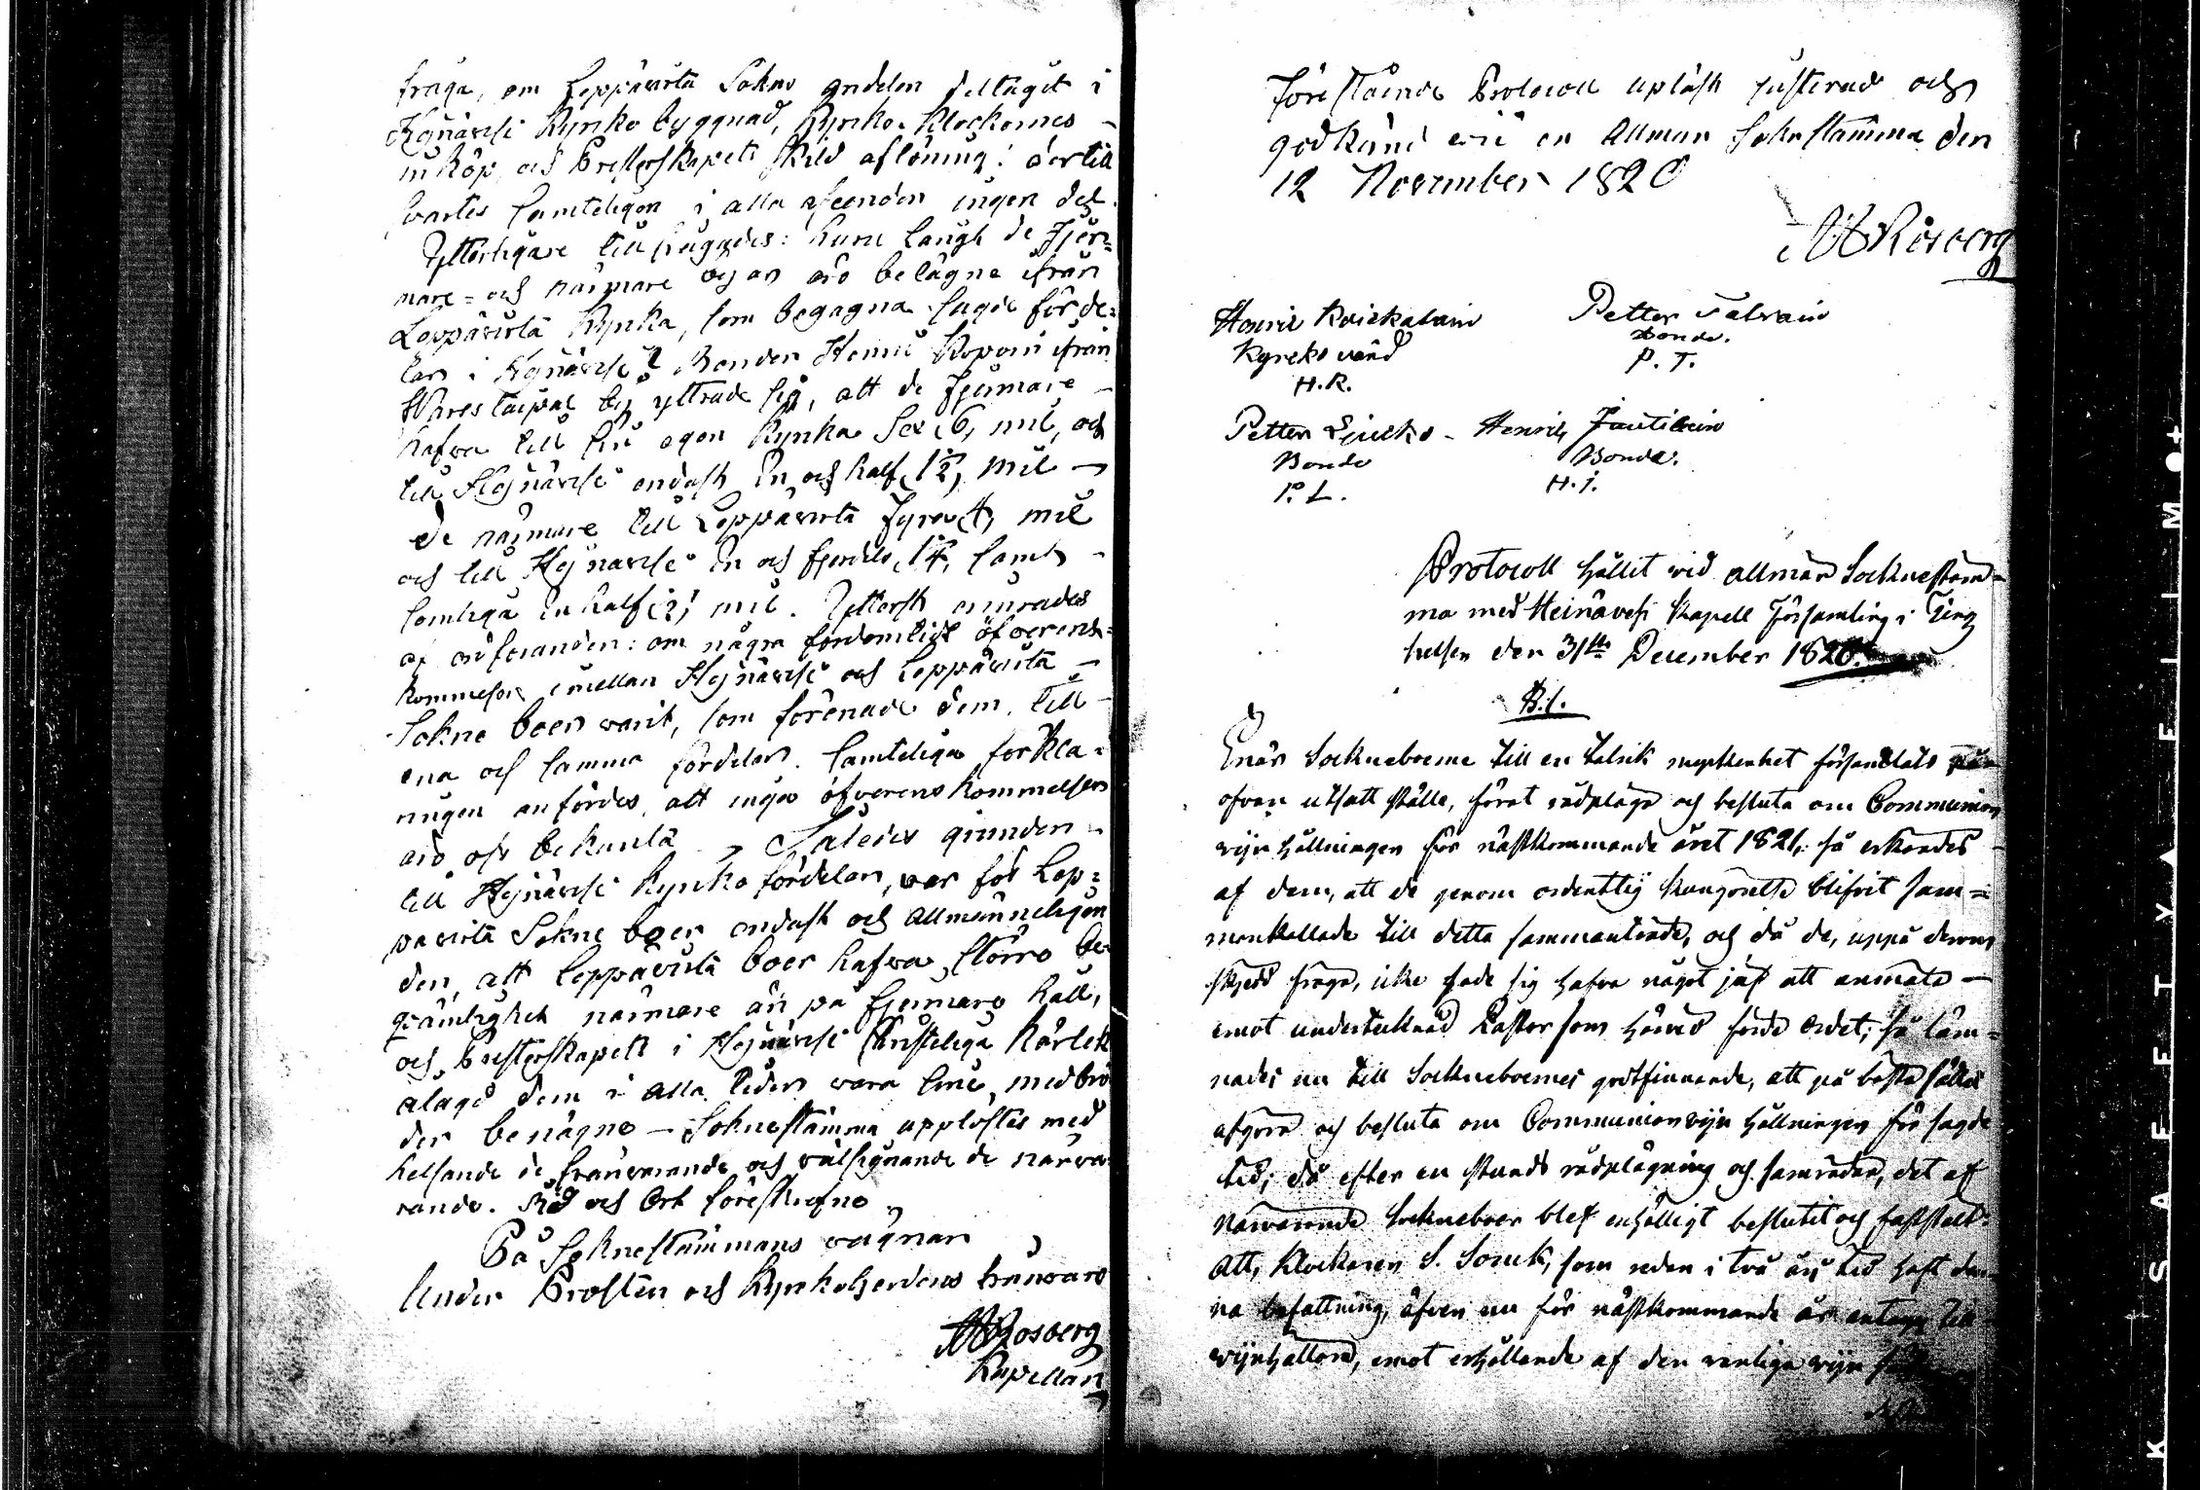 fråga, om Leppävirta Sokne andelen deltagit i
Hejnävesi Kyrko byggnad, Kyrko-Klockornes
inköp, och Presterskapets skild aflöning: dertill
svartes samteligen i alla afseenden ingen del.
Ytterligare till frågades: huru långt de fjer-
mare- och närmare byar äro belägne ifrån
Leppävirta Kyrka, som begagna sagde förde-
lar i Hejnävesi? Bonden Henric Koponi ifrån
by yttrade sig, att de fjermare
hafva till sin egen Kyrka Sex, 6, mil, och
till Hejnävesi endast En och half, 1½, mil
de närmare till Leppävirta fyra, 4, mil
och till Hejnävesi En och fjerdels, 1¼, samt
somliga En half, ½, mil. Ytterst
af ordföranden: om några fordomtida öfverens-
kommelser emellan Hejnävesi och Leppävirta
Sokne boer varit, som förenade dem till
ena och samma fördelar. Samteliga förkla-
ringen anfördes, att inga öfverenskommelser
äro oss bekanta. Således grunden
till Hejnävesi Kyrko fördelar, var för Lep-
pävirta Sokne boer endast och allmänneligen
den, att Leppävirta boer hafva större be-
qvämlighet närmare än på fjermare håll,
och Presterskapets i Hejnävesi Christeliga Kärlek
ålagd dem i alla tider vara sine medbrö
der benägne — Soknestämma upplöstes med
helsande de frånvarande och välsignande de närva-
rande. Tid och Ort föreskrefne
På Soknestämmans vägnar
Under Prosten och Kyrkoherdens frånvaro
Rosberg
Kapellan
Föreståënde Protocoll upläst justerad och
godkänd vid en Allmän Soknstämma den
12 November 1820
Rosberg
Henric
Kyrkovärd
H.R.
Petter
Bonde.
P. T.
Petter
Bonde
P. L.
Henric
Bonde.
H. I.
Protocoll hållit vid allmän Sockneståm-
ma med Heinävesi Kapell Församling i Ting
helsen den 31ste December 1820.
§. 1.
Enär Socknеboerne till en talrik myckenhet församlats på
ofvan utsatt ställe, föret rådpläga och besluta om Communion
vijn hållningen för nästkommande året 1821, så erkändes
af dem, att de genom ordentlig kungörelse blifvit sam-
mankallade till detta sammanträde, och då de, uppå derom
skjedd fråga, icke sade sig hafva något jäf att anmäla —
emot undertecknad Pastor som härvid förde ordet; så läm-
nades nu till Sockneboernes godtfinnande, att på bästa sättet
afgöra och besluta om Communionvijn hållningen för sagde
tid; då efter en stunds rådplägning och samråden, det af
närvarande Sockneboer blef enhälligt beslutit och faststält:
Att, Klockaren S. Sonck, som redan i två års tid haft den-
na befattning, äfven nu för nästkommande år antages till
vijnhållare, emot erhållande af den vanliga vijn